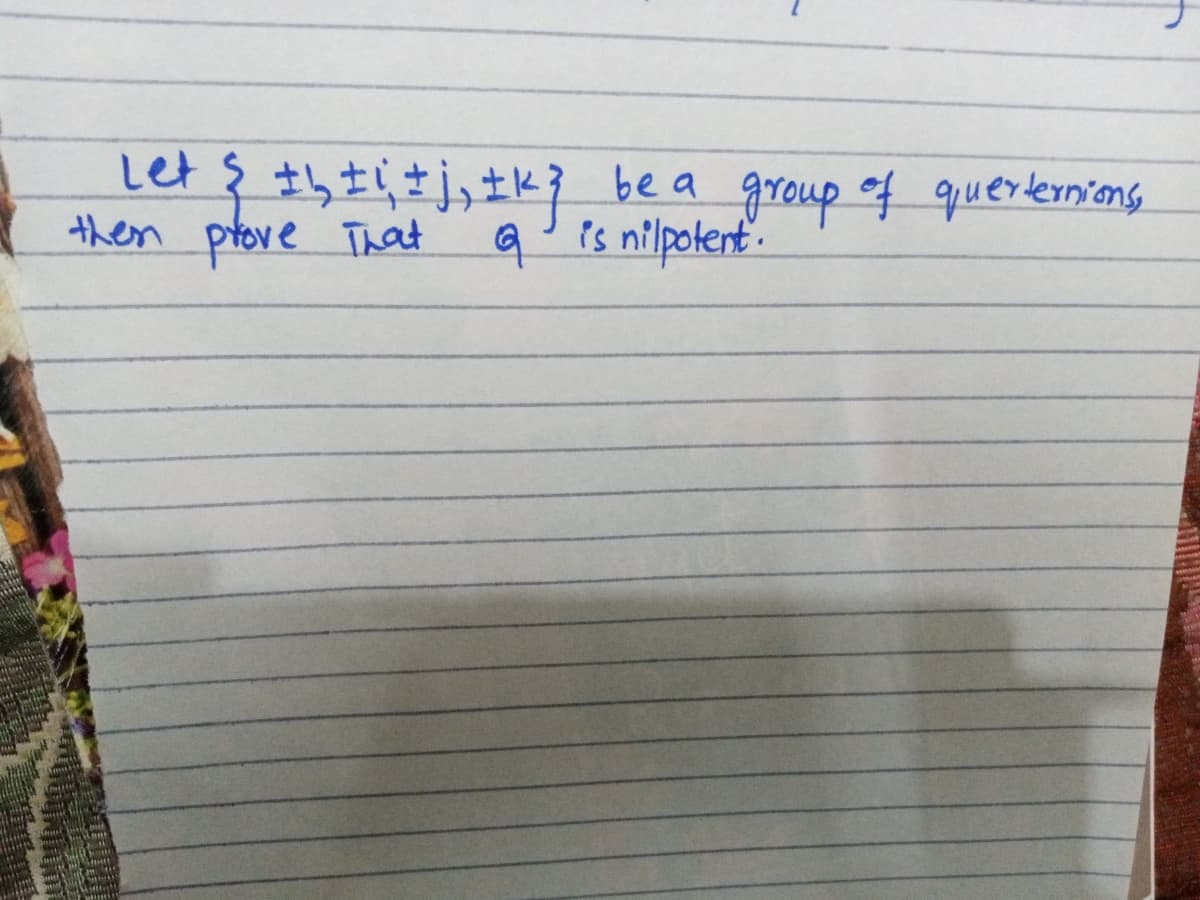 Let { ±1, ±i, ±j, ±k} be a group of querternions,
then prove That Q is nilpotent.